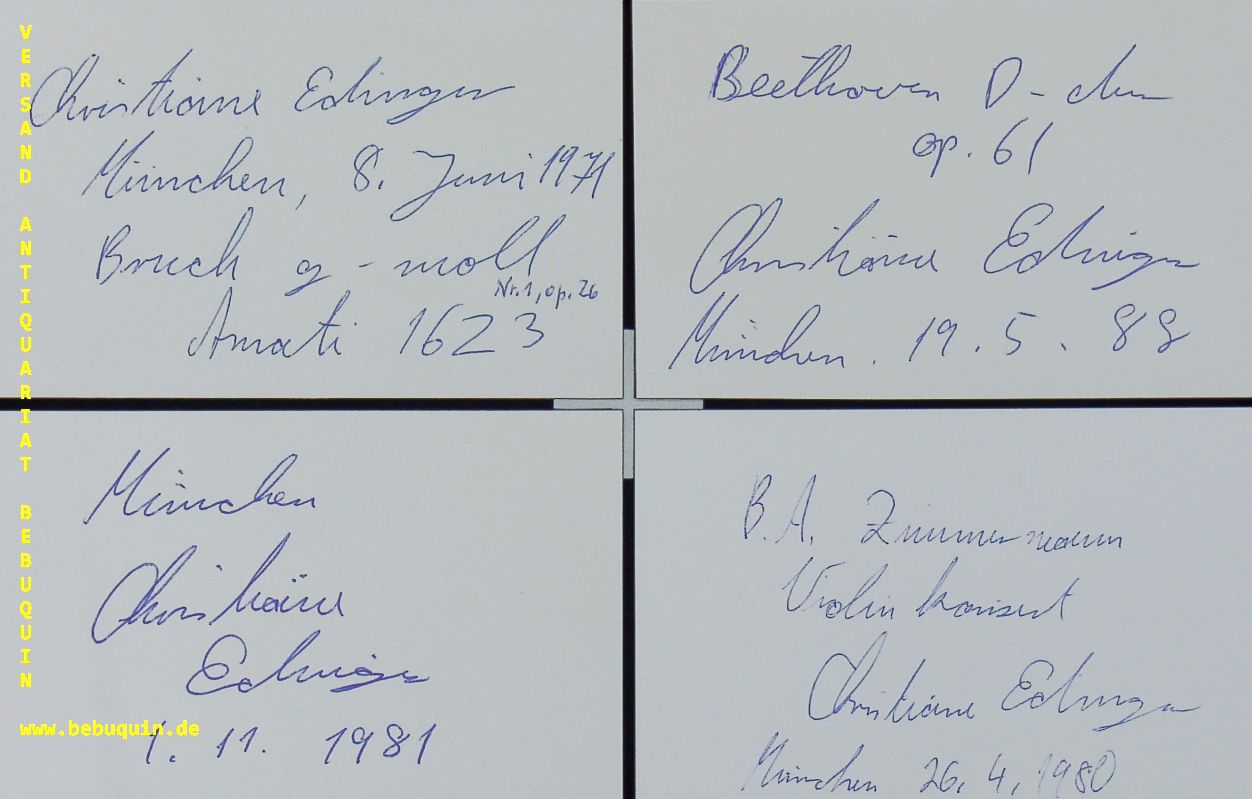 VERSAND ANTIQUARIAT BEBUQUIN
www.bebuquin.de
Christiane Edinger
München, 8. Juni 1971
Bruch g-moll
Nr.1, op. 26
Amati 1623
Beethoven D-dur
op. 61
Christiane Edinger
München. 19. 5. 88
München
Christiane
Edinger
1. 11. 1981
B.A. Zimmermann
Violinkonzert
Christiane Edinger
München 26. 4. 1980